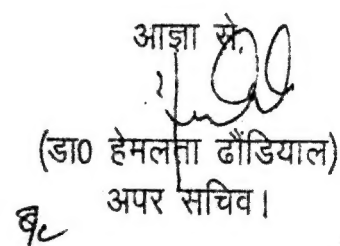 आज्ञा से,
(डा0 हेमलता ढौंडियाल)
अपर सचिव।